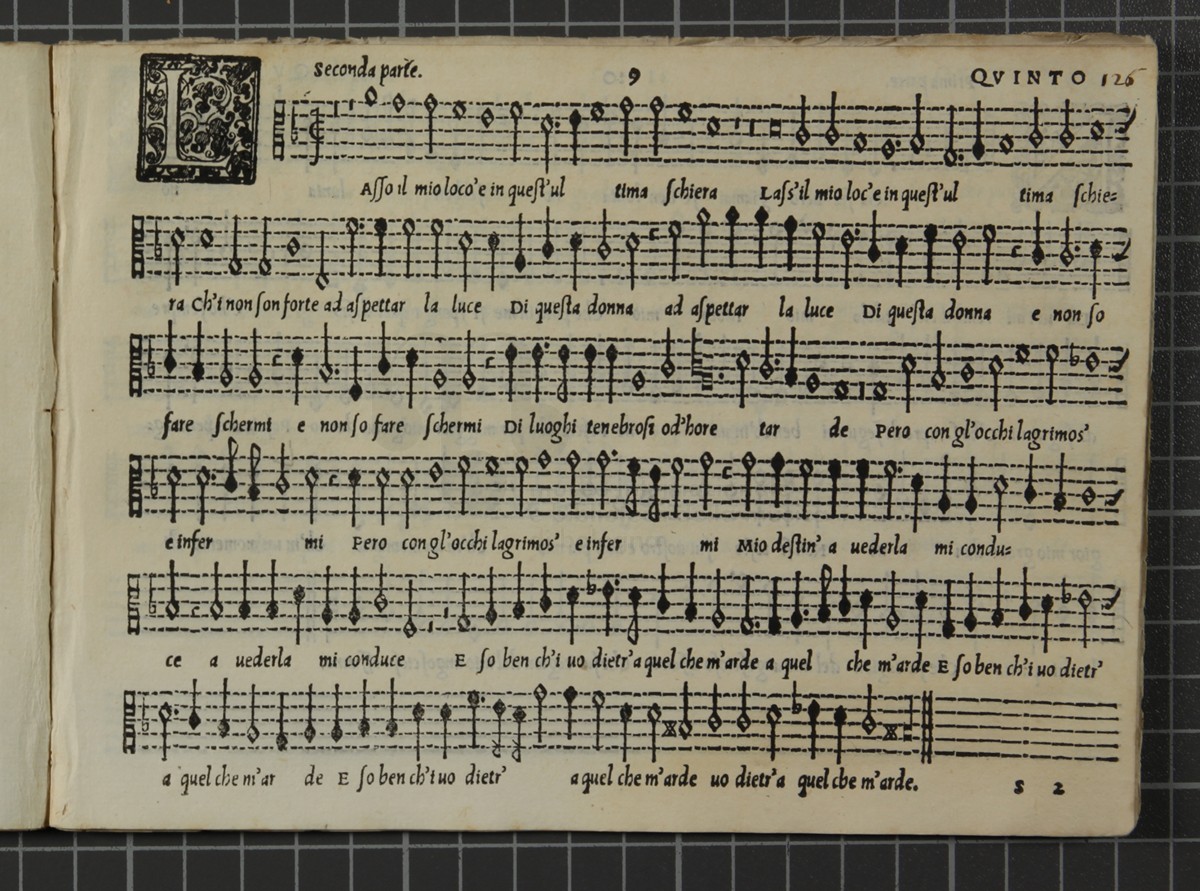 Seconda parte. 9 QVINTO 126
L
Asso il mio loco'e in quest'ul tima schiera Lass'il mio loc'e in quest'ul tima schie=
ra Ch'i non son forte ad aspettar la luce Di questa donna ad aspettar la luce Di questa donna e non so
fare schermi e non so fare schermi Di luoghi tenebrosi od'hore tar de Pero con gl'occhi lagrimos'
e infer mi Pero con gl'occhi lagrimos' e infer mi Mio destin' a uederla mi condu=
ce a uederla mi conduce E so ben ch'i uo dietr'a quel che m'arde a quel che m'arde E so ben ch'i uo dietr'
a quel che m'ar de E so ben ch'i uo dietr' a quel che m'arde uo dietr'a quel che m'arde.
S 2